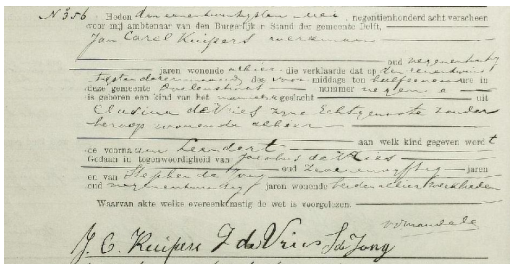 N 356 Heden den eenentwintigsten Mei, negentienhonderd acht verscheen
voor mij ambtenaar van den Burgerlijken Stand der gemeente Delft,
Jan Carel Kuipers werkman
oud negenentwintig
jaren wonende alhier die verklaarde dat op den
dezer maand des voormiddags ten half ure in
deze gemeente nummer negen a
is geboren een kind van het geslacht uit
Clasina de Vries zijne Echtgenoote zonder
beroep wonende alhier
de voornaam Leendert aan welk kind gegeven werdt
Gedaan in tegenwoordigheid van Jacobus de Vries
oud jaren
en van Stephen de Jong
oud negenentwintig jaren wonende beiden alhier
Waarvan akte welke overeenkomstig de wet is voorgelezen.
J. C. Kuipers J de Vries S de Jong